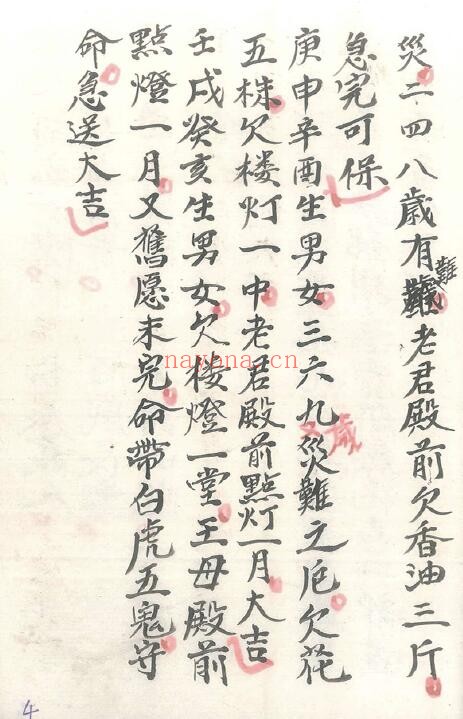 災二四八歳有難老君殿前欠香油三斤
急完可保
庚申辛酉生男女三六九歲災難之厄欠花
五株欠楼灯一中老君殿前點灯一月大吉
壬戌癸亥生男女欠楼燈一堂王母殿前
點燈一月又舊愿未完命帶白虎五鬼守
命急送大吉
nayona.cn
4